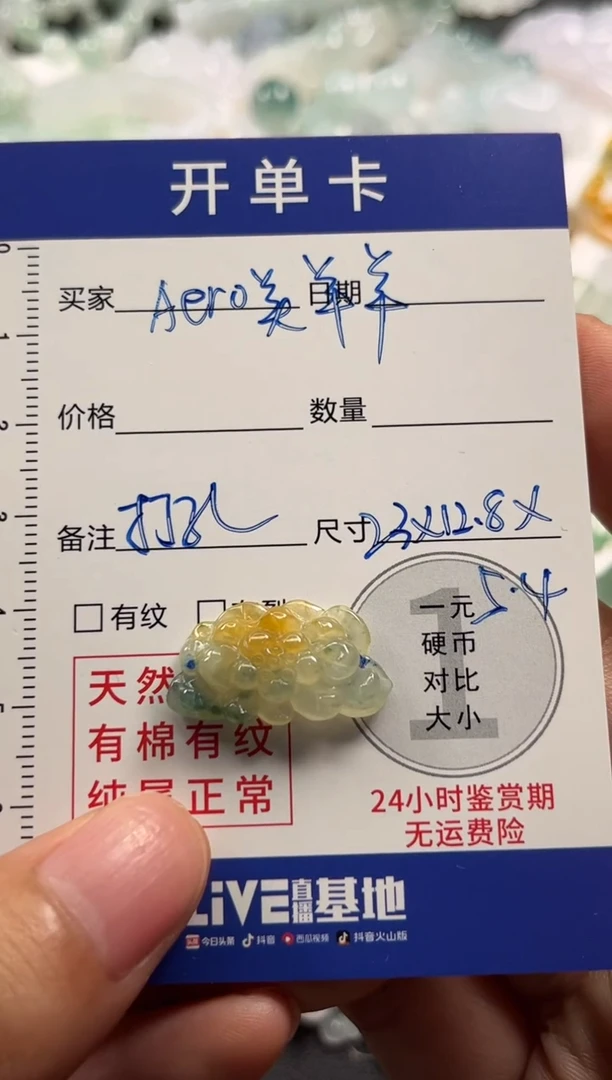 开单卡
买家 Aero美羊羊 日期
价格 数量
备注 打孔 尺寸 23X12.8X
5.4
有纹
一元
硬币
对比
大小
天然
有棉有纹
纯属正常
24小时鉴赏期
无运费险
LiVE直播基地
今日头条 抖音 西瓜视频 抖音火山版
0
1
2
3
4
5